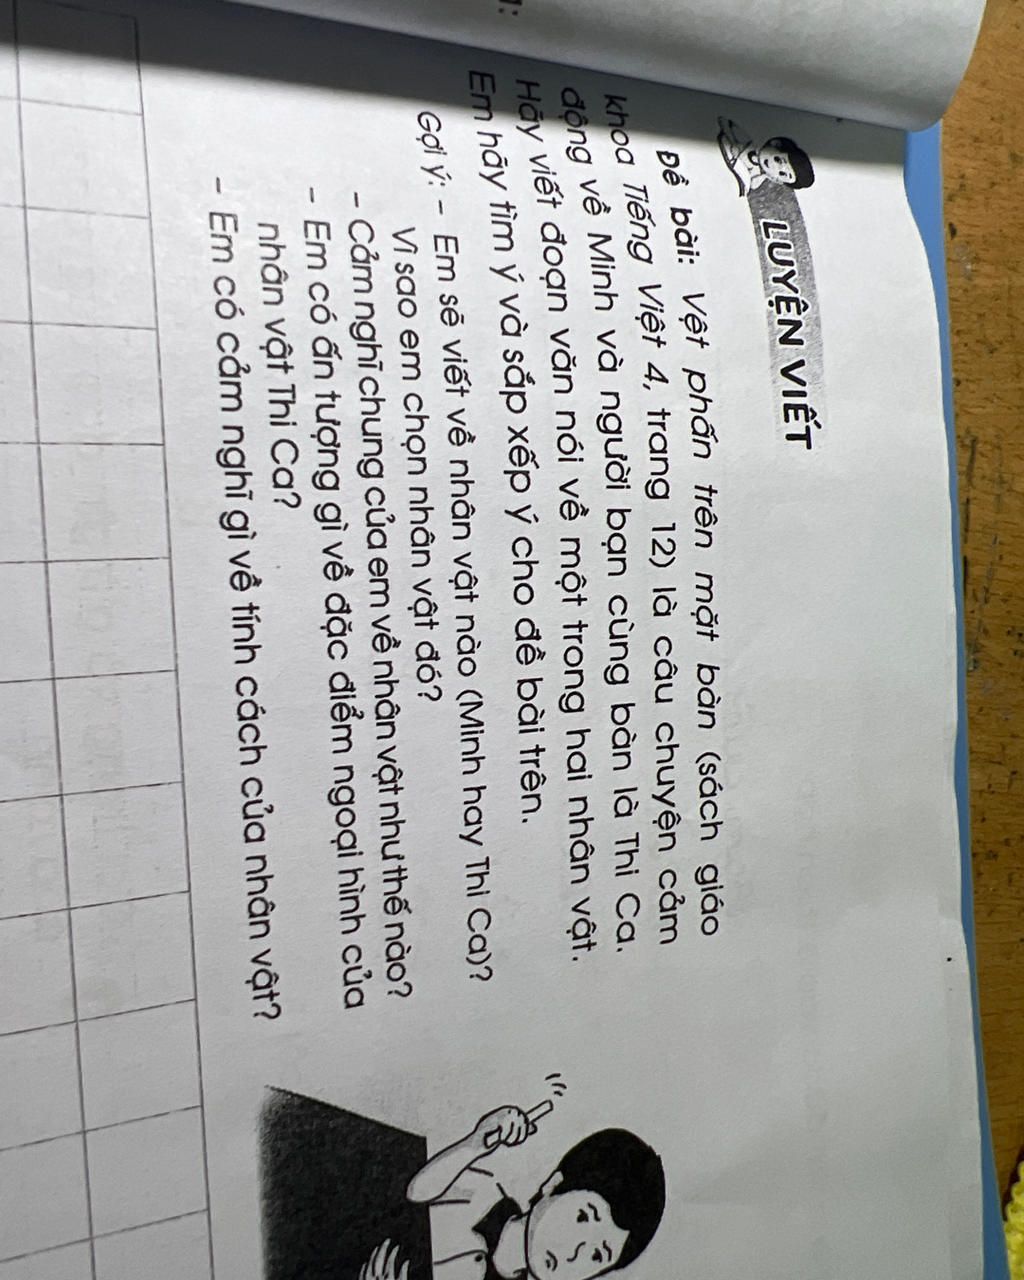 LUYỆN VIẾT
Đề bài: Vệt phấn trên mặt bàn (sách giáo
khoa Tiếng Việt 4, trang 12) là câu chuyện cảm
động về Minh và người bạn cùng bàn là Thi Ca.
Hãy viết đoạn văn nói về một trong hai nhân vật.
Em hãy tìm ý và sắp xếp ý cho đề bài trên.
Gợi ý: - Em sẽ viết về nhân vật nào (Minh hay Thi Ca)?
Vì sao em chọn nhân vật đó?
- Cảm nghĩ chung của em về nhân vật như thế nào?
- Em có ấn tượng gì về đặc điểm ngoại hình của
nhân vật Thi Ca?
- Em có cảm nghĩ gì về tính cách của nhân vật?